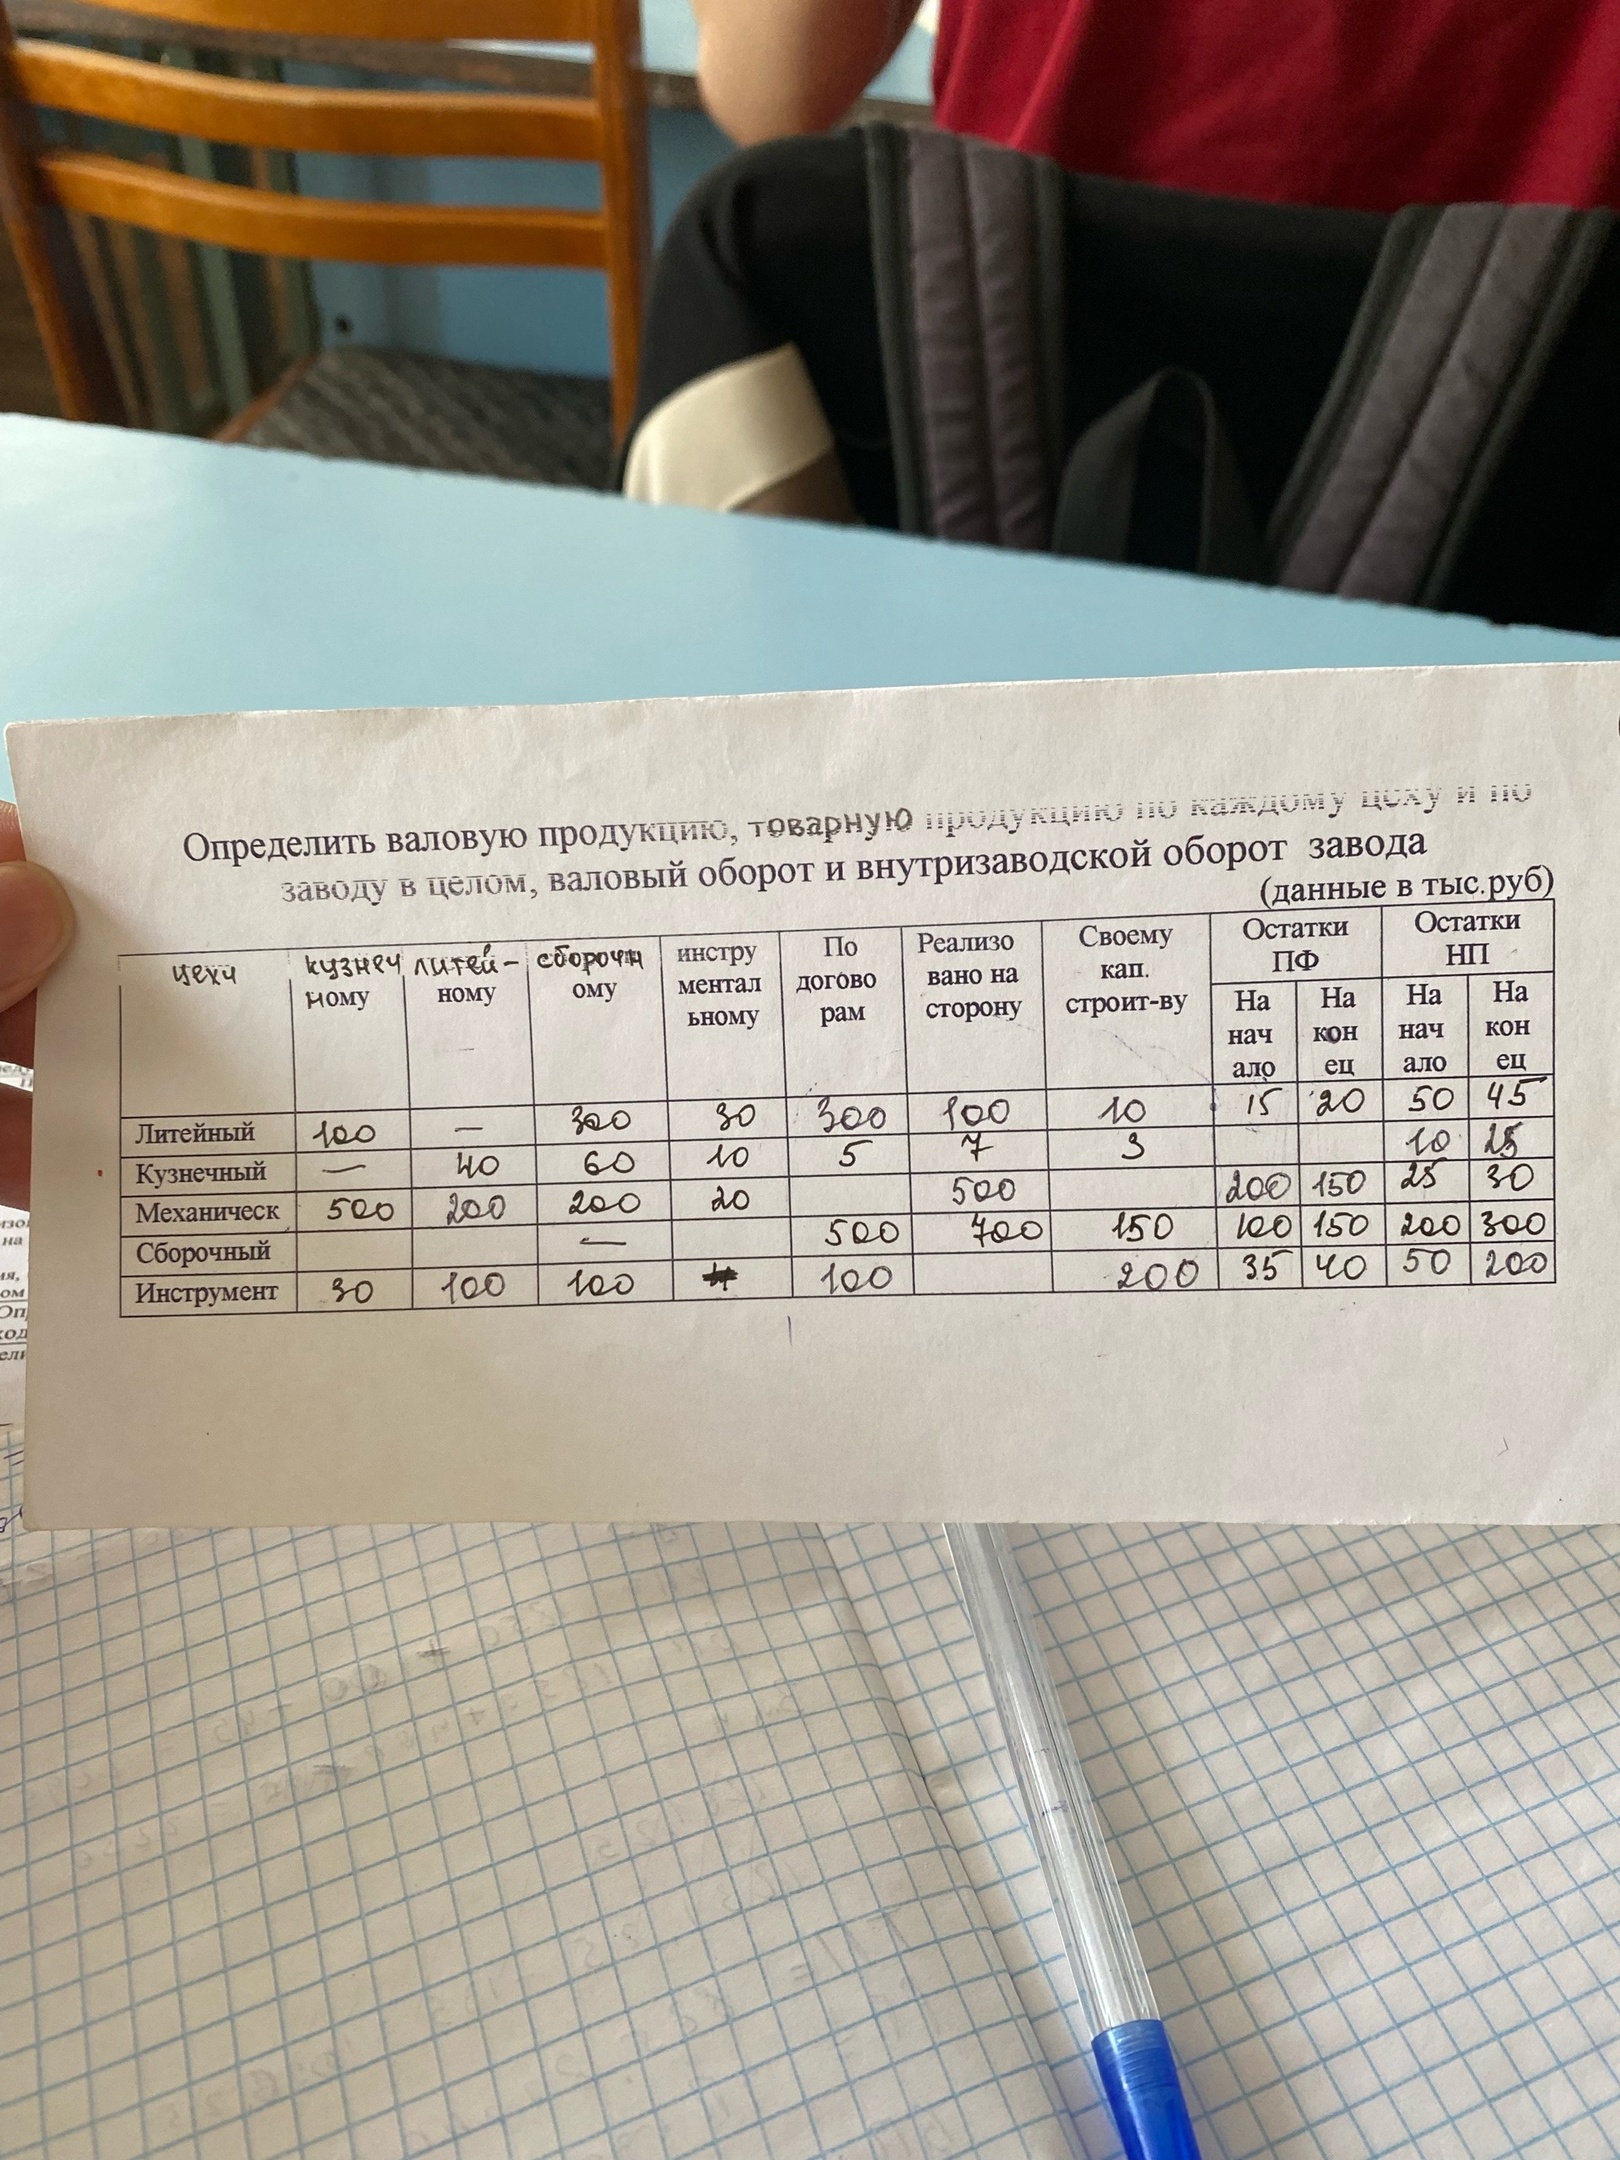 Определить валовую продукцию, товарную продукцию по каждому цеху и по
заводу в целом, валовый оборот и внутризаводской оборот завода
(данные в тыс.руб)
цехи кузнеч ному литей- ному сборочн ому инстру ментал ьному По догово рам Реализо вано на сторону Своему кап. строит-ву Остатки ПФ Остатки НП
На нач ало На кон ец На нач ало На кон ец
Литейный 100 — 300 30 300 100 10 15 20 50 45
Кузнечный — 40 60 10 5 7 3 10 25
Механическ 500 200 200 20 500 200 150 25 30
Сборочный — 500 700 150 100 150 200 300
Инструмент 30 100 100 100 200 35 40 50 200